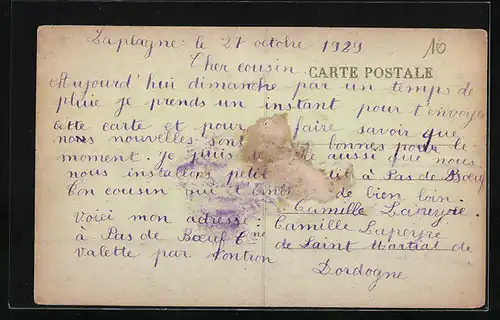 Laplagne le 27 octobre 1929
10
Cher cousin
CARTE POSTALE
Aujourd'hui dimanche par un temps de
pluie je prends un instant pour t'envoyer
cette carte et pour faire savoir que
nos nouvelles sont bonnes pour le
moment. Je puis aussi que nous
nous installons petit à Pas de Bœuf
Ton cousin qui t'embr de bien loin.
Camille Lapeyre.
Voici mon adresse: Camille Lapeyre
à Pas de Bœuf Cne de Saint Martial de
Valette par Nontron
Dordogne